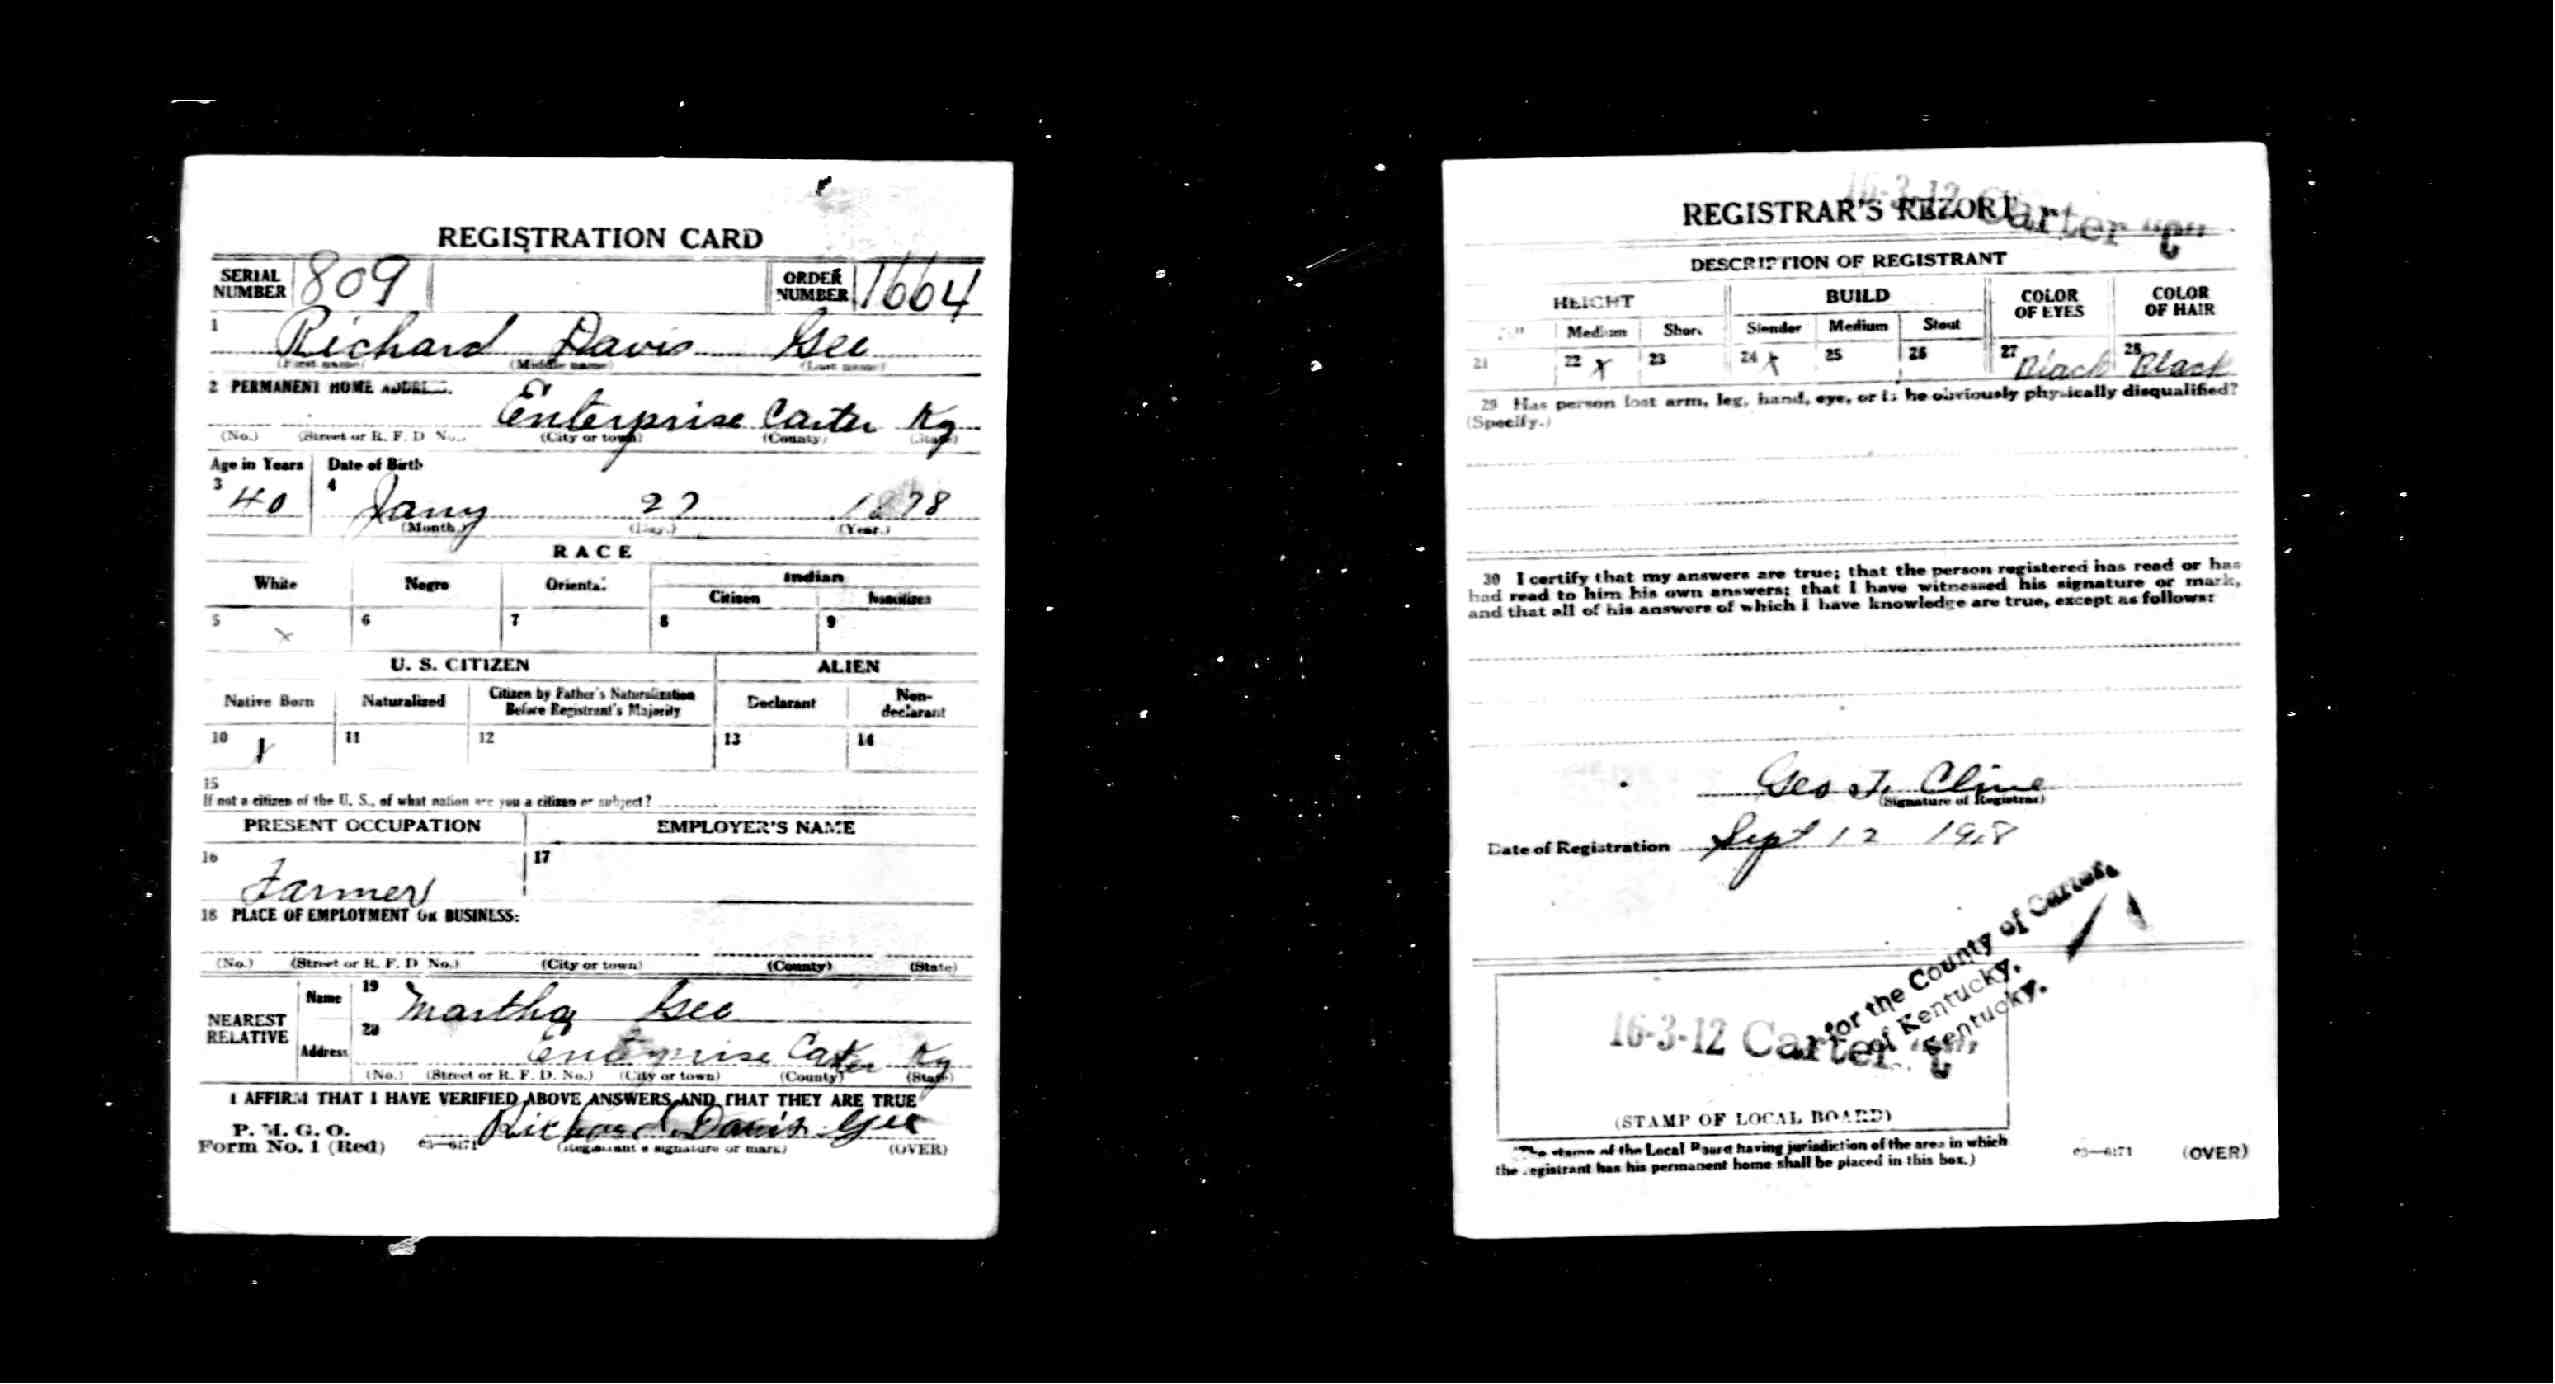 REGISTRATION CARD
SERIAL NUMBER 809 ORDER NUMBER 1664
1 Richard Davis Gee
(First name) (Middle name) (Last name)
2 PERMANENT HOME ADDRESS:
Enterprise Carter Ky
(No.) (Street or R. F. D. No.) (City or town) (County) (State)
Age in Years Date of Birth
3 40 4 Jany 27 1878
(Month.) (Day.) (Year.)
RACE
White Negro Oriental Indian
Citizen Noncitizen
5 x 6 7 8 9
U. S. CITIZEN ALIEN
Native Born Naturalized Citizen by Father's Naturalization Before Registrant's Majority Declarant Non-declarant
10 x 11 12 13 14
15
If not a citizen of the U. S., of what nation are you a citizen or subject?
PRESENT OCCUPATION EMPLOYER'S NAME
16 Farmer 17
18 PLACE OF EMPLOYMENT OR BUSINESS:
(No.) (Street or R. F. D. No.) (City or town) (County) (State)
NEAREST RELATIVE Name 19 Martha Gee
Address 20 Enterprise Carter Ky
(No.) (Street or R. F. D. No.) (City or town) (County) (State)
I AFFIRM THAT I HAVE VERIFIED ABOVE ANSWERS AND THAT THEY ARE TRUE
P. M. G. O.
Form No. 1 (Red) 03—6171 Richard Davis Gee
(Registrant's signature or mark) (OVER)
16-3-12 Carter "C"
REGISTRAR'S REPORT
DESCRIPTION OF REGISTRANT
HEIGHT BUILD COLOR OF EYES COLOR OF HAIR
Tall Medium Short Slender Medium Stout
21 22 x 23 24 x 25 26 27 Black 28 Black
29 Has person lost arm, leg, hand, eye, or is he obviously physically disqualified?
(Specify.)
30 I certify that my answers are true; that the person registered has read or has
had read to him his own answers; that I have witnessed his signature or mark,
and that all of his answers of which I have knowledge are true, except as follows:
Geo T. Cline
(Signature of Registrar)
Date of Registration Sept 12 1918
for the County of Carter,
of Kentucky.
Kentucky.
16-3-12 Carter "C"
(STAMP OF LOCAL BOARD)
(The stamp of the Local Board having jurisdiction of the area in which
the registrant has his permanent home shall be placed in this box.)
03—6171 (OVER)